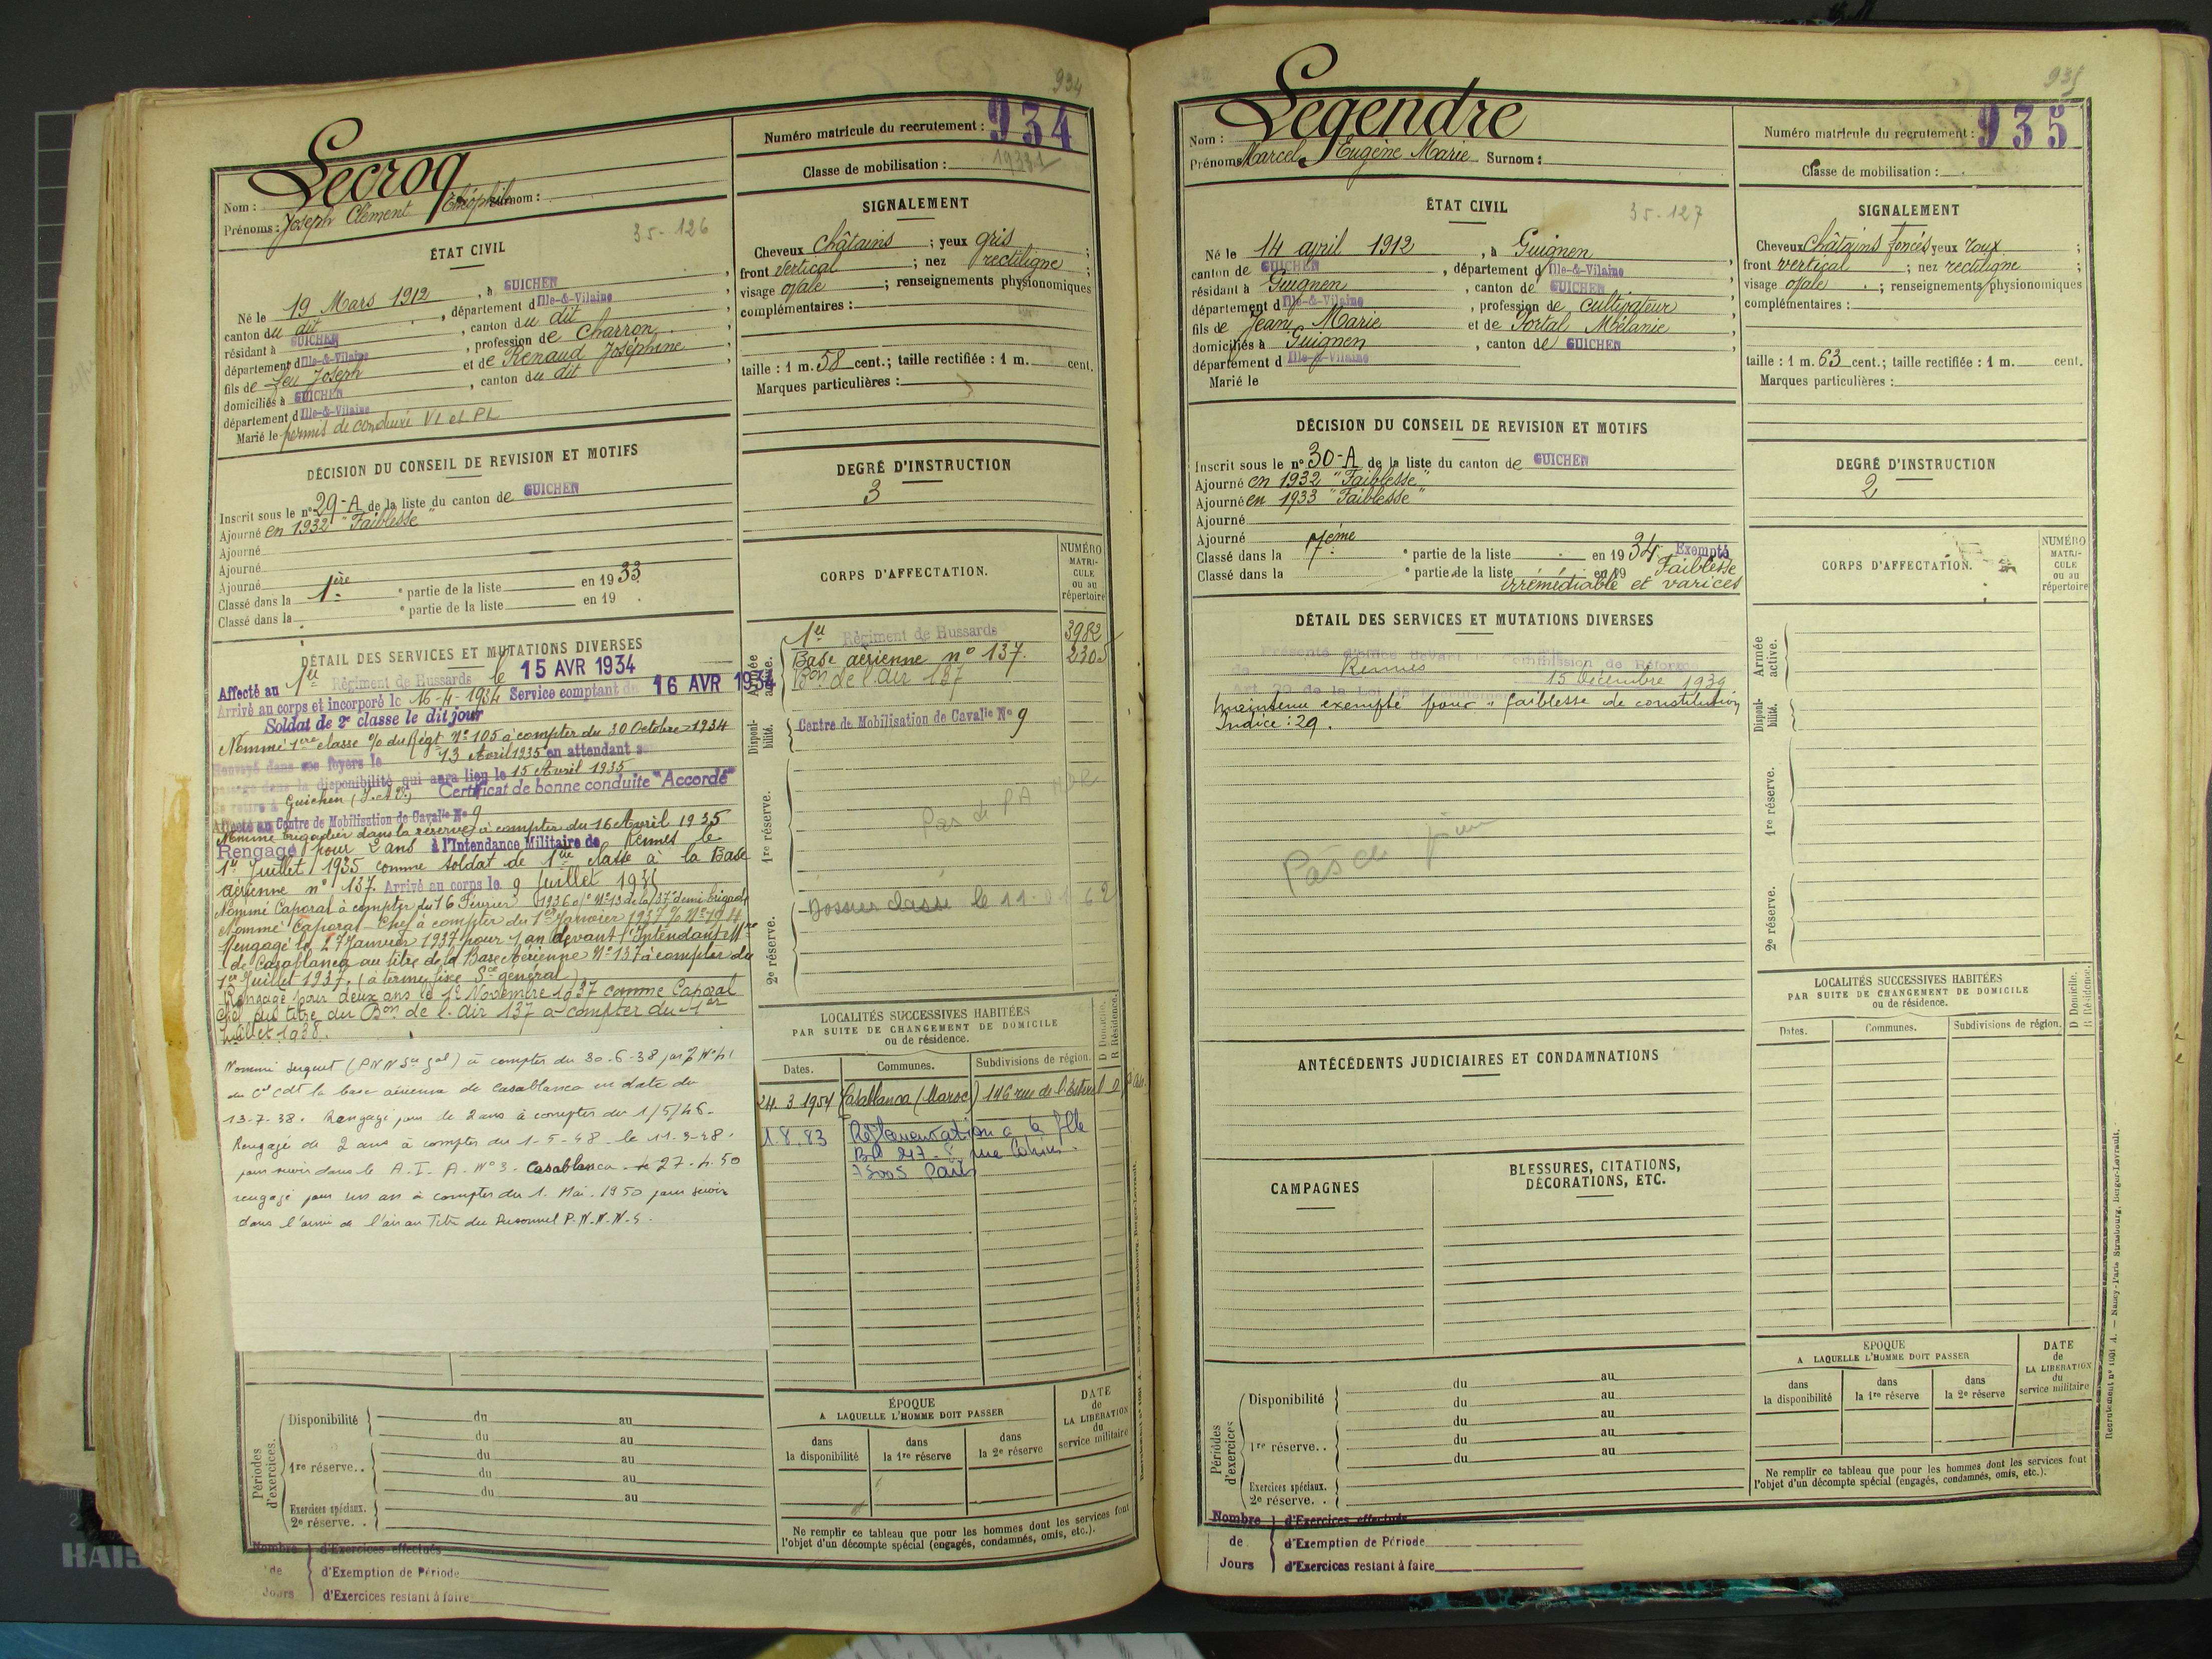 934
Numéro matricule du recrutement : 934
Classe de mobilisation :
Nom : Lecroq
Prénoms : Joseph Clément Théophile Surnom :
35-126
ÉTAT CIVIL
Né le 19 Mars 1912, à GUICHEN
canton du dit, département d'Ille-&-Vilaine
résidant à GUICHEN, canton du dit
département d'Ille-&-Vilaine, profession de Charron
fils de feu Joseph et de Renaud Joséphine
domiciliés à GUICHEN, canton du dit
département d'Ille-&-Vilaine
Marié le permis de conduire VL et PL
SIGNALEMENT
Cheveux châtains ; yeux gris ;
front vertical ; nez rectiligne ;
visage ovale ; renseignements physionomiques
complémentaires :
taille : 1 m. 58 cent.; taille rectifiée : 1 m. cent.
Marques particulières :
DÉCISION DU CONSEIL DE REVISION ET MOTIFS
Inscrit sous le n° 29-A de la liste du canton de GUICHEN
Ajourné en 1932 "Faiblesse"
Ajourné
Ajourné
Ajourné
Classé dans la 1ère e partie de la liste en 1933
Classé dans la e partie de la liste en 19
DEGRÉ D'INSTRUCTION
3
CORPS D'AFFECTATION.
NUMÉRO
MATRI-
CULE
ou au
répertoire
Armée active.
1er Régiment de Hussards 3982
Base aérienne n° 137. 2305
Bon de l'air 137
Disponibilité.
Centre de Mobilisation de Cavalie No 9
1re réserve.
Pas de PA
2e réserve.
Dossier classé le 11. 62
DÉTAIL DES SERVICES ET MUTATIONS DIVERSES
Affecté au 1er Régiment de Hussards le 15 AVR 1934
Arrivé au corps et incorporé le 16-4-1934 Service comptant du 16 AVR 1934
Soldat de 2e classe le dit jour
Nommé 1ère classe % du Régt N° 105 à compter du 30 Octobre 1934
Renvoyé dans ses foyers le 13 Avril 1935 en attendant
passage dans la disponibilité qui aura lieu le 15 Avril 1935
Se retire à Guichen (I. et V.) Certificat de bonne conduite "Accordé"
Affecté au Centre de Mobilisation de Cavalie No 9
Nommé brigadier dans la réserve à compter du 16 Avril 1935
Rengagé pour 2 ans à l'Intendance Militaire de Rennes le
1er Juillet 1935 comme soldat de 1ère classe à la Base
aérienne n° 137. Arrivé au corps le 9 Juillet 1935
Nommé Caporal à compter du 16 Février 1936 % N° 13 de la 37e demi brigade
Nommé Caporal-Chef à compter du 1er Janvier 1937 % N°
Rengagé le 27 Janvier 1937 pour 1 an devant l'Intendant Mre
de Casablanca au titre de la Base Aérienne N° 137 à compter du
1er Juillet 1937. (à terme fixe Sce général)
Rengagé pour deux ans le 12 Novembre 1937 comme Caporal
Chef au titre du Bon de l'air 137 à compter du 1er
Juillet 1938.
Nommé Sergent (PNN Sce gal) à compter du 30-6-38 par
du Cl Cdt la base aérienne de Casablanca en date du
13-7-38. Rengagé pour le 2 ans à compter du 1/5/46.
Rengagé de 2 ans à compter du 1-5-48 le 11-3-48.
pour servir dans le A.I.A. N° 3. Casablanca. le 27.4.50
rengagé pour un an à compter du 1. Mai. 1950 pour servir
dans l'armée de l'air au Titre du Personnel P.N.N.N.S.
LOCALITÉS SUCCESSIVES HABITÉES
PAR SUITE DE CHANGEMENT DE DOMICILE
ou de résidence.
Dates. Communes. Subdivisions de région. D Domicile. R Résidence.
24.3.1954 Casablanca (Maroc) 146 rue de l'Estérel D
1.8.83 Réglementation
BP 247 - rue
75005 Paris
Périodes d'exercices.
Disponibilité du au
du au
1re réserve.. du au
du au
du au
Exercices spéciaux.
2e réserve. .
ÉPOQUE
A LAQUELLE L'HOMME DOIT PASSER
dans la disponibilité
dans la 1re réserve
dans la 2e réserve
DATE
de
LA LIBÉRATION
du
service militaire
Ne remplir ce tableau que pour les hommes dont les services font
l'objet d'un décompte spécial (engagés, condamnés, omis, etc.).
Nombre de Jours
d'Exercices effectués
d'Exemption de Période
d'Exercices restant à faire
935
Numéro matricule du recrutement : 935
Classe de mobilisation :
Nom : Legendre
Prénoms Marcel Eugène Marie Surnom :
35-127
ÉTAT CIVIL
Né le 14 avril 1912, à Guignen
canton de GUICHEN, département d'Ille-&-Vilaine
résidant à Guignen, canton de GUICHEN
département d'Ille-&-Vilaine, profession de cultivateur
fils de Jean Marie et de Portal Mélanie
domiciliés à Guignen, canton de GUICHEN
département d'Ille-&-Vilaine
Marié le
SIGNALEMENT
Cheveux Châtains foncés yeux roux ;
front vertical ; nez rectiligne ;
visage ovale ; renseignements physionomiques
complémentaires :
taille : 1 m. 63 cent.; taille rectifiée : 1 m. cent.
Marques particulières :
DÉCISION DU CONSEIL DE REVISION ET MOTIFS
Inscrit sous le n° 30-A de la liste du canton de GUICHEN
Ajourné en 1932 "Faiblesse"
Ajourné en 1933 "Faiblesse"
Ajourné
Ajourné
Classé dans la 7ème e partie de la liste en 1934 Exempté
Classé dans la e partie de la liste en 19 Faiblesse
irrémédiable et varices
DEGRÉ D'INSTRUCTION
2
CORPS D'AFFECTATION.
NUMÉRO
MATRI-
CULE
ou au
répertoire
Armée active.
Disponibilité.
1re réserve.
2e réserve.
DÉTAIL DES SERVICES ET MUTATIONS DIVERSES
Présenté d'office devant la Commission de Réforme
de Rennes 15 décembre 1939
Art. 20 de la Loi de Recrutement
Maintenu exempté pour "faiblesse de constitution
Indice : 29.
Pas de
ANTÉCÉDENTS JUDICIAIRES ET CONDAMNATIONS
CAMPAGNES
BLESSURES, CITATIONS,
DÉCORATIONS, ETC.
LOCALITÉS SUCCESSIVES HABITÉES
PAR SUITE DE CHANGEMENT DE DOMICILE
ou de résidence.
Dates. Communes. Subdivisions de région. D Domicile. R Résidence.
Périodes d'exercices
Disponibilité du au
du au
du au
1re réserve. . du au
du au
Exercices spéciaux.
2e réserve. .
ÉPOQUE
A LAQUELLE L'HOMME DOIT PASSER
dans la disponibilité
dans la 1re réserve
dans la 2e réserve
DATE
de
LA LIBÉRATION
du
service militaire
Ne remplir ce tableau que pour les hommes dont les services font
l'objet d'un décompte spécial (engagés, condamnés, omis, etc.).
Nombre de Jours
d'Exercices effectués
d'Exemption de Période
d'Exercices restant à faire
Recrutement n° 1091 A. — Nancy-Paris-Strasbourg, Berger-Levrault.